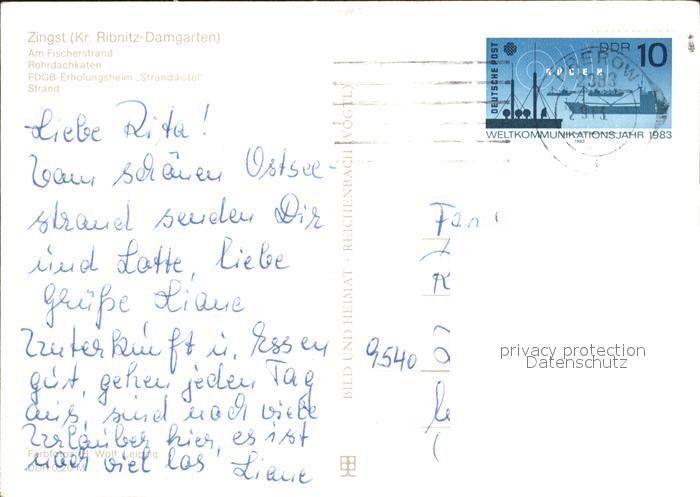 Zingst (Kr. Ribnitz-Damgarten)
Am Fischerstrand
Rohrdachkaten
FDGB-Erholungsheim „Stranddistel"
Strand
Liebe Rita!
Vom schönen Ostsee-
strand senden Dir
und Lotte, liebe
Grüße Liane
Unterkunft u. Essen
gut, gehen jeden Tag
aus, sind noch viele
Urlauber hier, es ist
noch viel los Liane
Farbfotos: H. Wolf, Leipzig
DDR 0,20 M
BILD UND HEIMAT · REICHENBACH (VOGTL)
DEUTSCHE POST
DDR 10
WELTKOMMUNIKATIONSJAHR 1983
1983
Fam
9540
privacy protection
Datenschutz